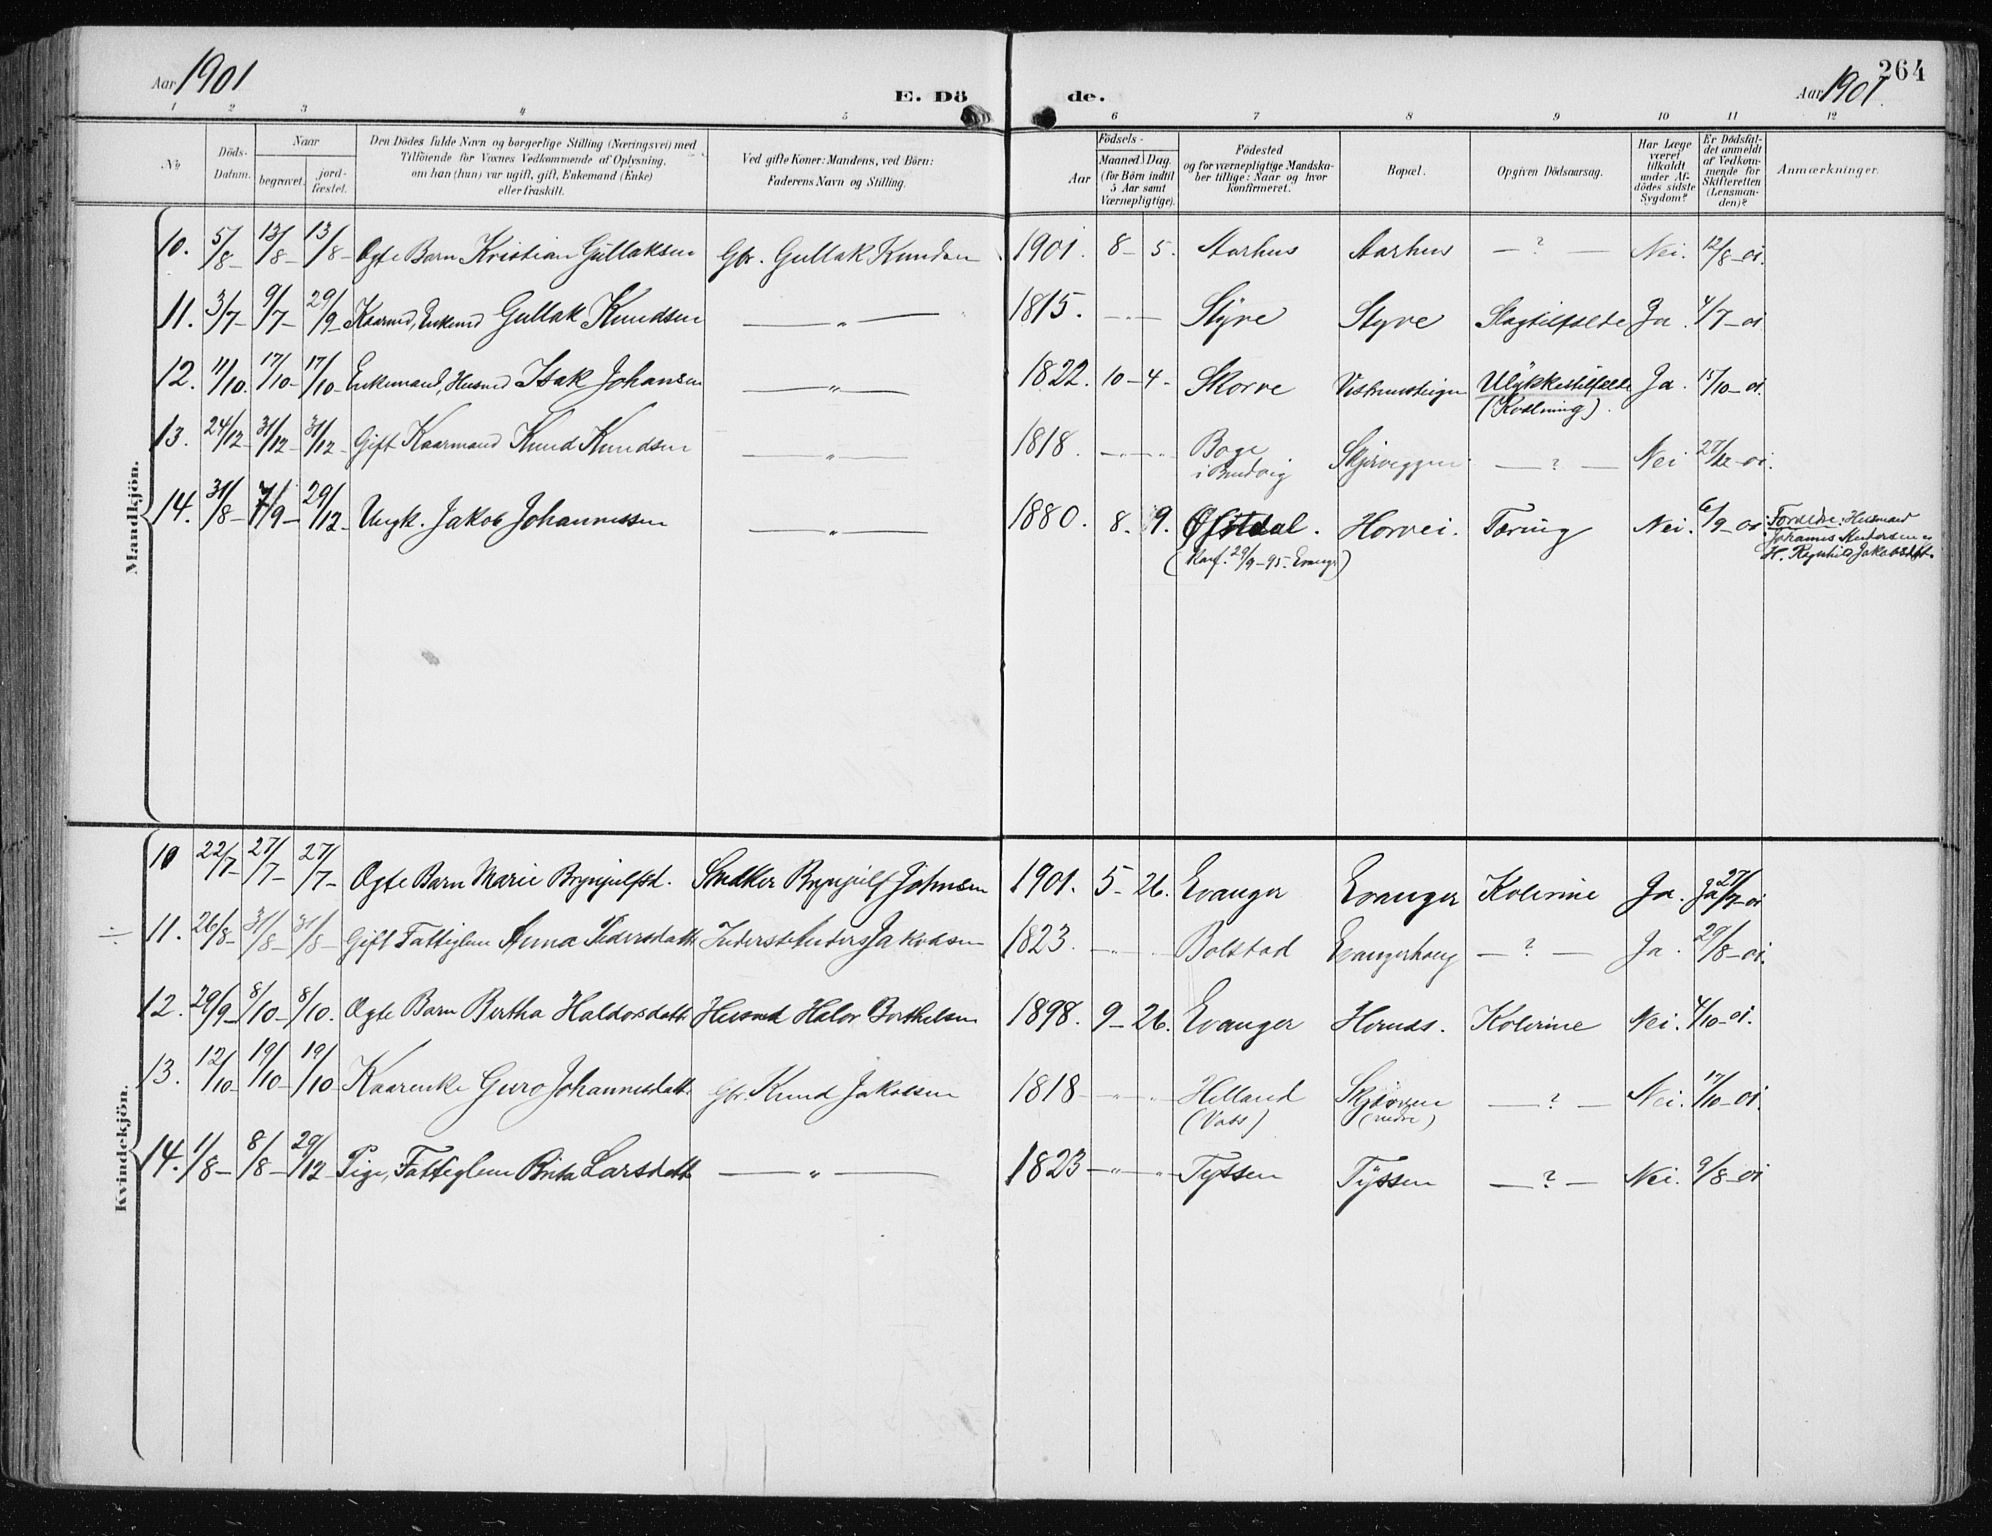 264
Aar 1901
E. Dö
de.
Aar 1901.
1 2 3 4 5 6 7 8 9 10 11 12
No
Döds-
Datum.
Naar
begravet.
jord-
fæstet.
Den Dödes fulde Navn og borgerlige Stilling (Næringsvei) med
Tilföiende for Voxnes Vedkommende af Oplysning,
om han (hun) var ugift, gift, Enkemand (Enke)
eller fraskilt.
Ved gifte Koner: Mandens, ved Börn:
Faderens Navn og Stilling.
Födsels-
Aar
Maaned
Dag
(for Börn indtil
5 Aar samt
Værnepligtige).
Födested
og for værnepligtige Mandska-
ber tillige: Naar og hvor
konfirmeret.
Bopæl.
Opgiven Dödsaarsag.
Har Læge
været
tilkaldt
under Af-
dödes sidste
Sygdom?
Er Dödsfal-
det anmeldt
af Vedkom-
mende for
Skifteretten
(Lensman-
den)?
Anmærkninger.
Mandkjön.
10. 5/8- 13/8- 13/8- Ægte Barn Kristian Gullaksen Gbr. Gullak Knudsen 1901. 8- 5. Aarhus Aarhus —?— Nei. 12/8-01.
11. 3/7- 9/7- 29/9- Kaarmd, Enkemd Gullak Knudsen —„— 1815. -„- Styve Styve Slagtilfælde Ja. 4/7-01
12. 11/10. 17/10- 17/10- Enkemand, Husmd Isak Johansen —„— 1822. 10- 4- Skorve Ulykkestilfælde Ja. 15/10-01.
(Kvælning).
13. 24/12- 31/12- 31/12- Gift Kaarmand Knud Knudsen —„— 1818. -„-„- Boge Skjerveggen —?— Nei 27/12-01.
14. 31/8- 7/9- 29/12- Ungk. Jakob Johannessen —„— 1880. 8. 9. Horvei. Tæring Nei. 6/9-01 Forældre: Husmand
(Konf. 29/9-95. Evanger) Johannes Andersen og
H. Jakobsdtr.
Kvindekjön.
10 22/7- 27/7- 27/7- Ægte Barn Marie Brynjulfsd. Snedker Brynjulf Johnsen 1901. 5- 26. Evanger Evanger Kolerine Ja. Ja 27/7-01
÷ 11. 26/8- 31/8- 31/8- Gift Fattiglem Anna Pedersdatt. Inderste Anders Jakobsen 1823. -„-„- Bolstad Evangerhaug —?— Ja. 29/8-01.
12. 29/9- 8/10- 8/10. Ægte Barn Bertha Haldorsdatt. Husmd Halor Borthelsen 1898. 9- 26. Evanger Hernæs. Kolerine Nei. 4/10-01.
13. 12/10- 19/10- 19/10- Kaarenke Guro Johannesdatt. Gbr. Knud Jakobsen 1818 -„-„- Helland —?— Nei. 17/10-01.
(Voss) (nedre)
14. 1/8- 8/8- 29/12- Pige, Fattiglem Brita Larsdatt. —„— 1823 -„-„- Tyssen Tyssen —?— Nei. 9/8-01